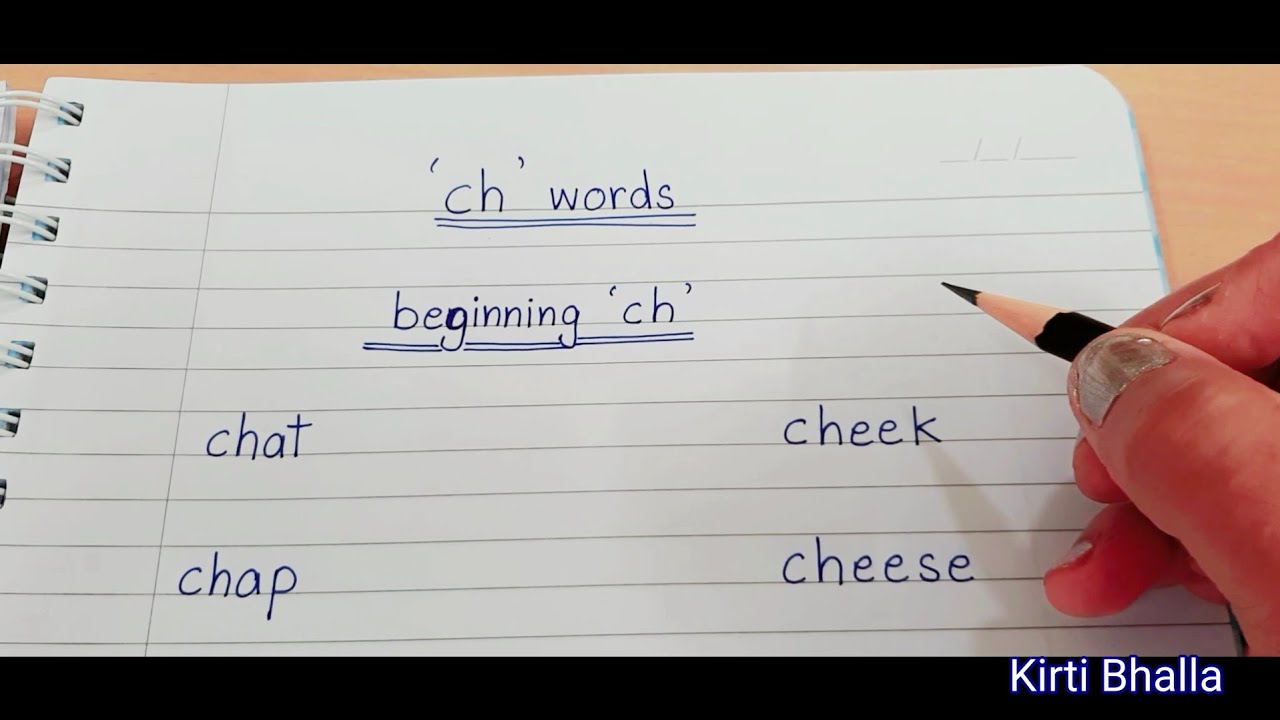 ‘ch’ words
beginning ‘ch’
chat cheek
chap cheese
Kirti Bhalla